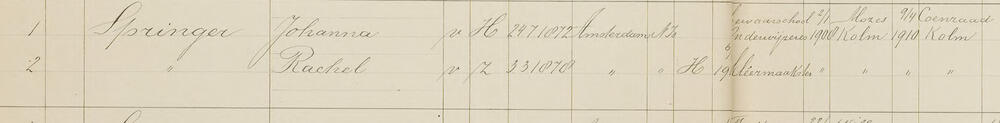 Bewaarschool 2/1 Mozes 9/4 Coenraad
1 Springer Johanna v H 24 7 1872 Amsterdam N.Is Onderwijzeres 1908 Kolm 1910 Kolm
2 " Rachel v Z 3 3 1878 " " H Kleermaakster " " " "